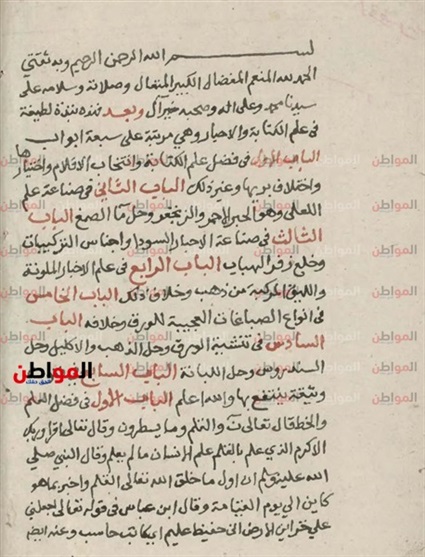 بسم الله الرحمن الرحيم وبه ثقتي
الحمد لله المنعم المفضال الكبير المتعال وصلاته وسلامه على
سيدنا محمد وعلى اله وصحبه خير آل وبعد فهذه نبذة لطيفة
فى علم الكتابة والاحبار وهي مرتبة على سبعة ابواب
الباب الاول فى فضل علم الكتابة وانتخاب الاقلام واختيارها
واختلاف بريها وغير ذلك الباب الثاني فى صناعة علم
الحبر الاحمر والزنجفر وحل الصمغ الباب
الثالث فى صناعة الاحبار السود واجناس التركيبات
وخلع زفر الهباب الباب الرابع فى علم الاحبار الملونة
والليق المركبة من ذهب وخلاف ذلك الباب الخامس
فى انواع الصباغات العجيبة للورق وخلافه الباب
السادس فى الورق وحل الذهب والاكليل وحل
السندروس وحل الباب السابع
ينتفع بها والله اعلم الباب الاول فى فضل القلم
والخط قال تعالى ن والقلم وما يسطرون وقال تعالى اقرا وربك
الاكرم الذي علم بالقلم علم الانسان ما لم يعلم وقال النبي صلى
الله عليه وسلم ان اول ما خلق الله تعالى القلم واخبر بما هو
كاين الى يوم القيامة وقال ابن عباس فى قوله تعالى اجعلني
على خزاين الارض اني حفيظ عليم اي كاتب حاسب وعنه ايضا
المواطن